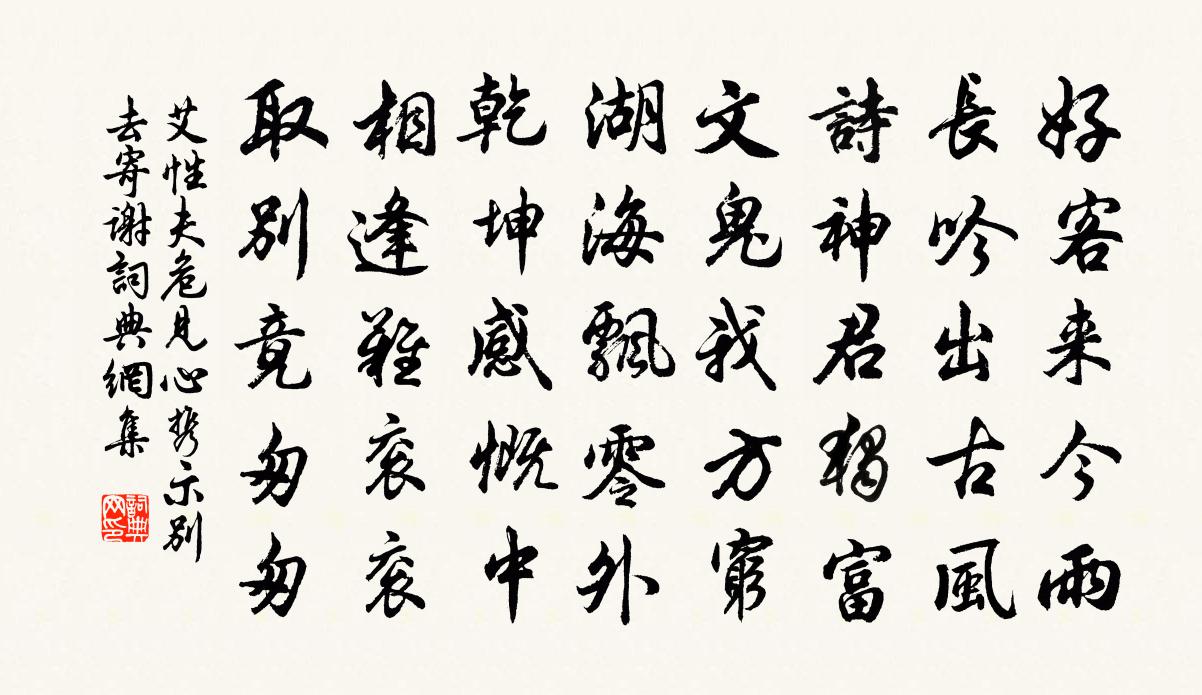 好客来今雨
長吟出古風
詩神君獨富
文鬼我方窮
湖海飄零外
乾坤感慨中
相逢難衮衮
取别竟匆匆
艾性夫危見心携示别
去寄謝詞典網集
詞典網印